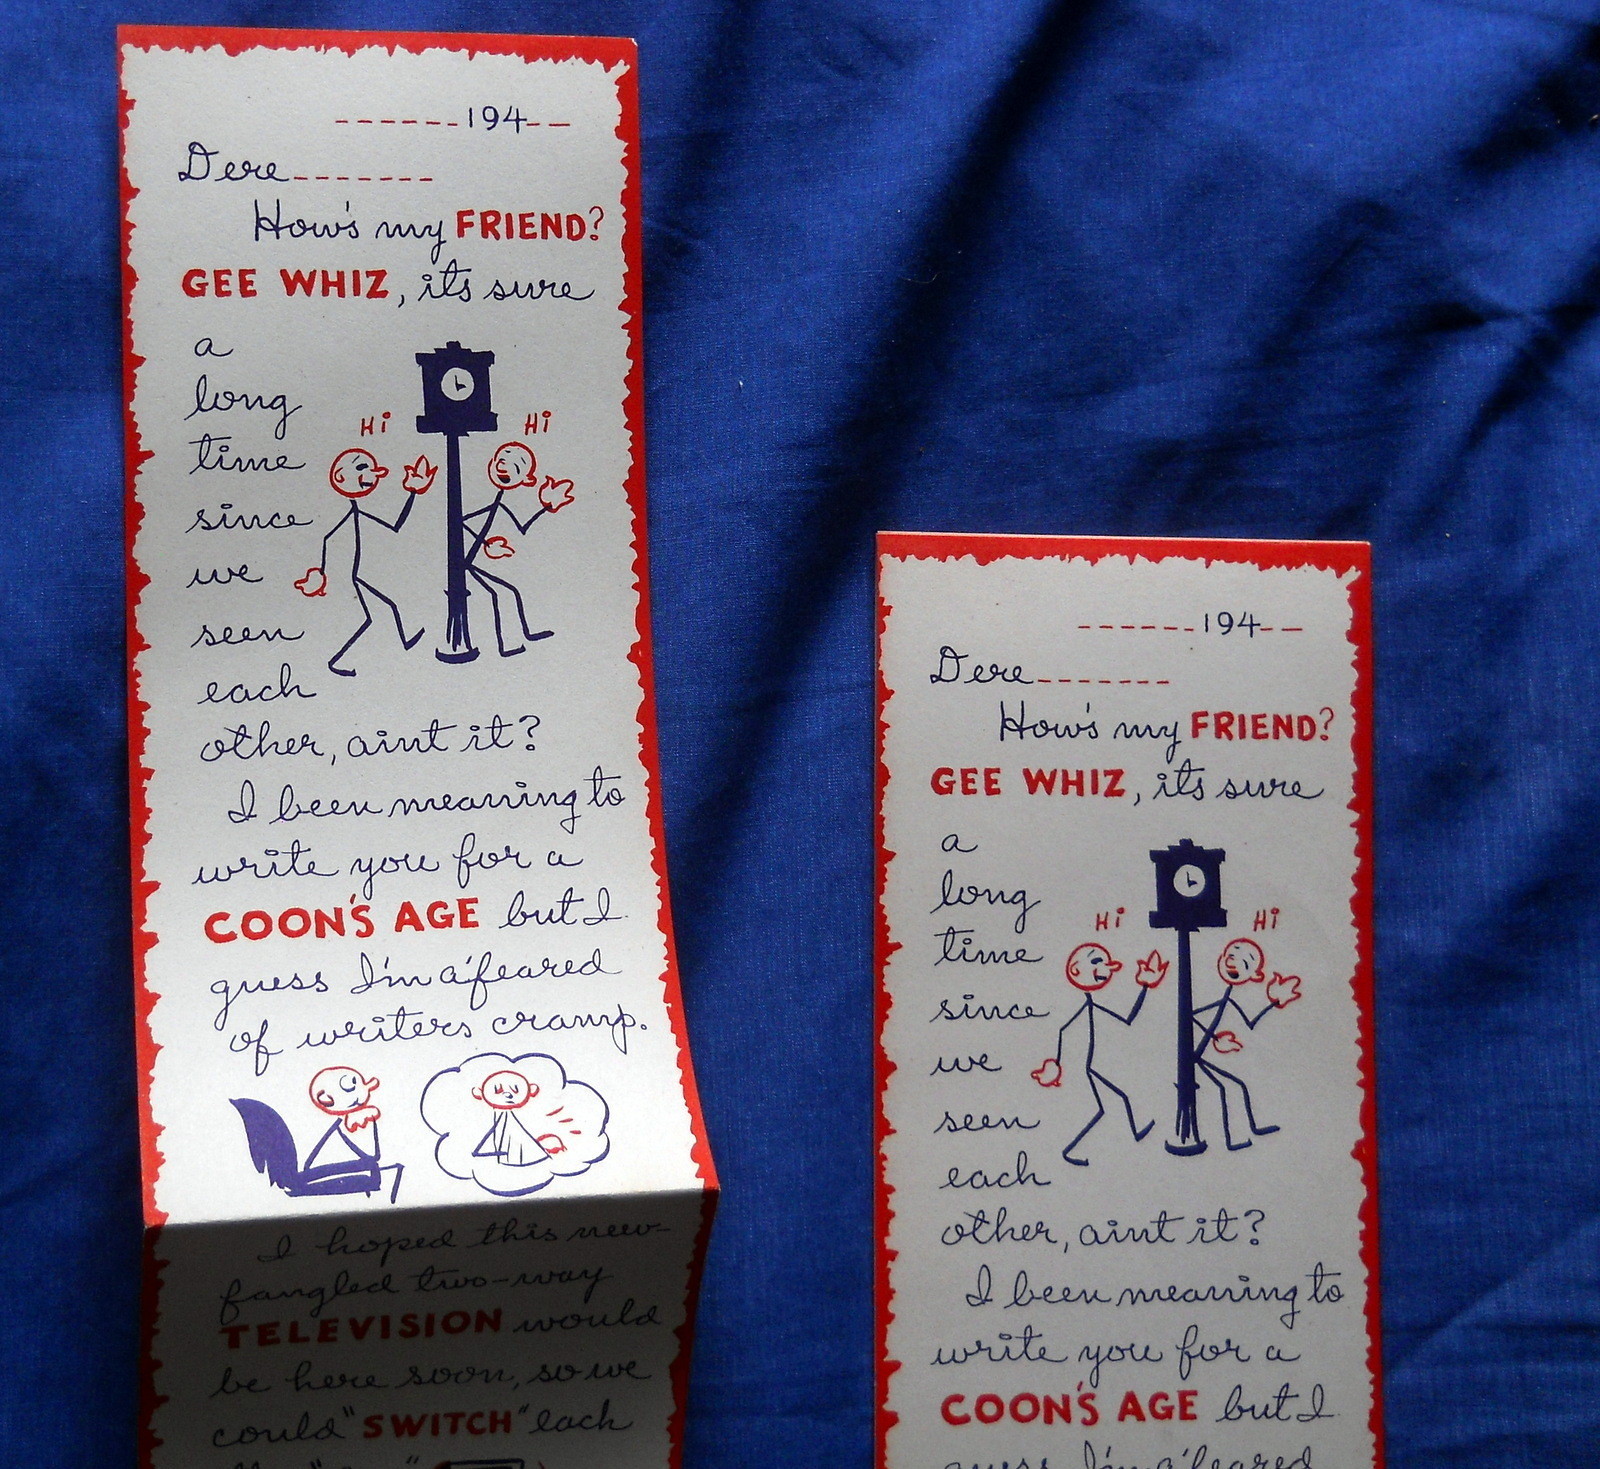 ------194--
Dere-------
How's my FRIEND?
GEE WHIZ, its sure
a
long
time
since
we
seen
each
other, aint it?
Hi
Hi
I been meaning to
write you for a
COON'S AGE but I
guess I'm a'feared
of writers cramp.
I hoped this new-
fangled two-way
TELEVISION would
be here soon, so we
could "SWITCH" each
------194--
Dere-------
How's my FRIEND?
GEE WHIZ, its sure
a
long
time
since
we
seen
each
other, aint it?
Hi
Hi
I been meaning to
write you for a
COON'S AGE but I
guess I'm a'feared